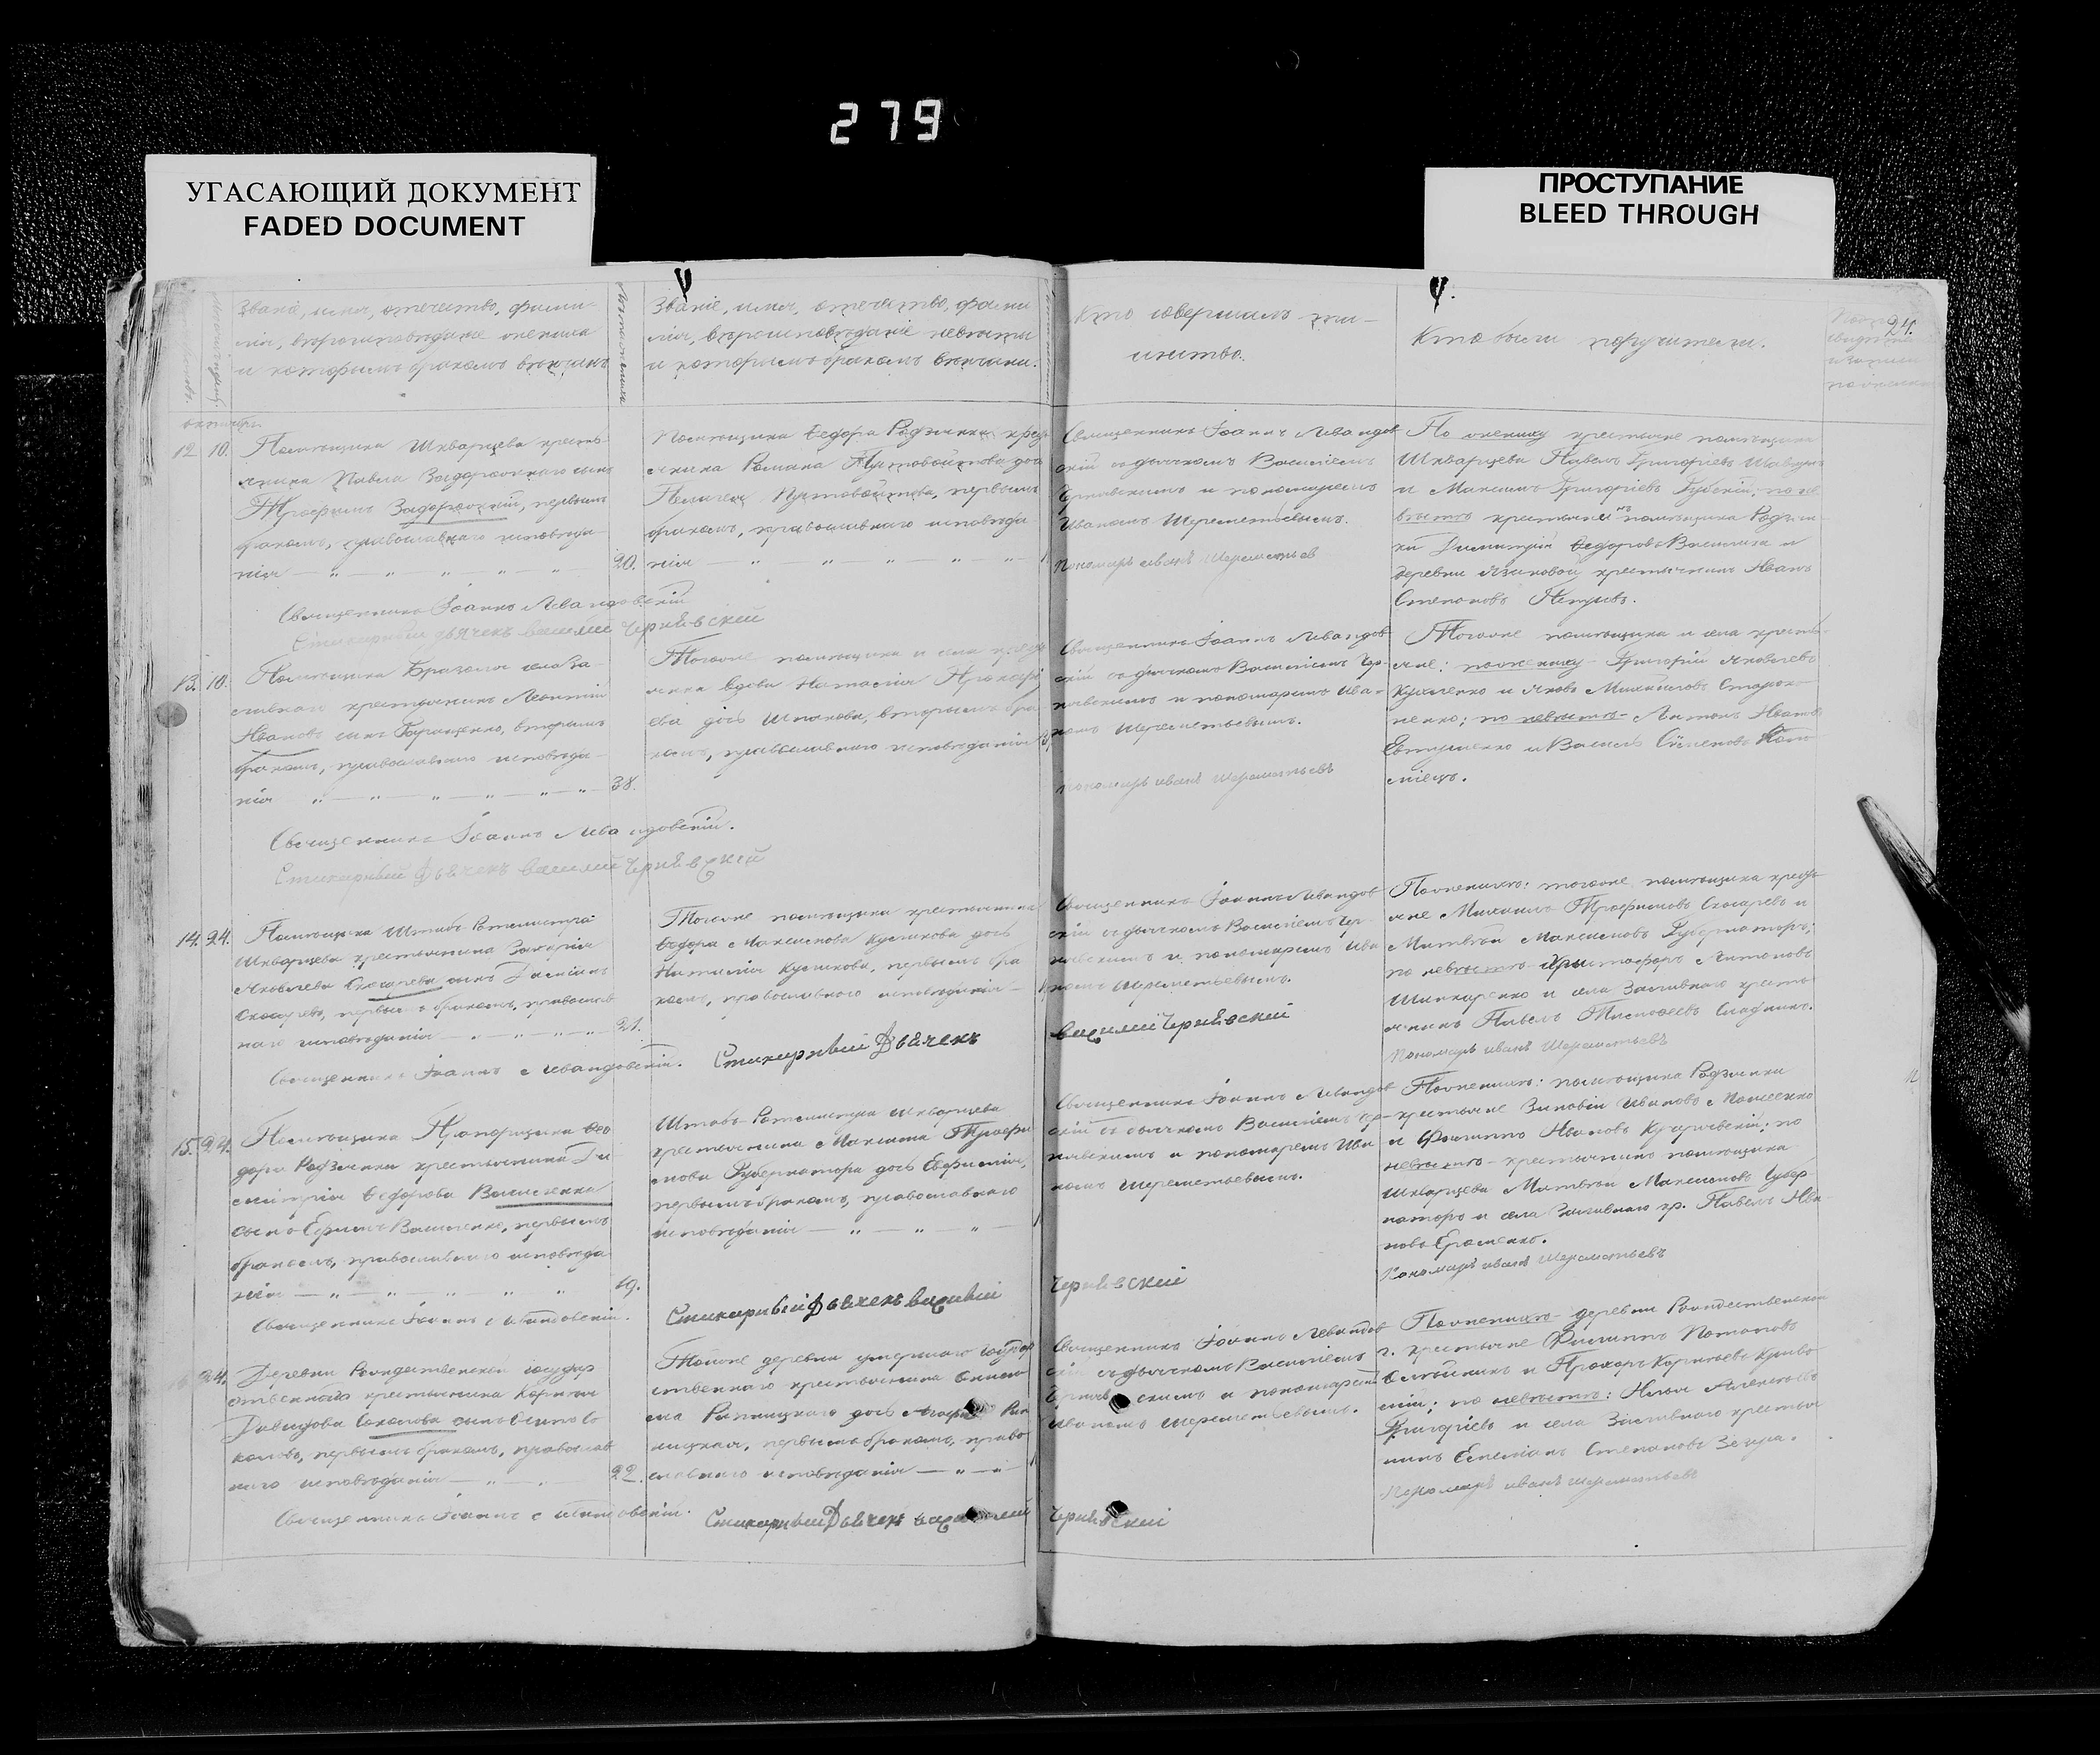 279
УГАСАЮЩИЙ ДОКУМЕНТ
FADED DOCUMENT
ПРОСТУПАНИЕ
BLEED THROUGH
24.
Званіе, имя, отечество, фами-
лія, вѣроисповѣданіе жениха
и которымъ бракомъ вѣнчанъ
Званіе, имя, отечество, фами
лія, вѣроисповѣданіе невѣсты
и которымъ бракомъ вѣнчана.
Кто совершалъ та-
инство.
Кто были поручители.
октября
12 10.
Помѣщика Шкварцева кресть-
янина Павла Задорожнаго сынъ
Трофимъ Задорожній, первымъ
бракомъ, православнаго исповѣда-
нія
20.
Помѣщика Ѳедора Родзянки крест
янина Романа
Пелагея первымъ
бракомъ, православнаго исповѣда
нія
Священникъ Іоаннъ Левандов
скій съ дьячкомъ Василіемъ
Чернявскимъ и пономаремъ
Иваномъ Шереметьевымъ.
Пономарь иванъ Шереметьев
По жениху крестьяне помѣщика
Шкварцева Павелъ Григорьевъ
и Максимъ Григоріевъ Губскій; по не
вѣстѣ крестьяне помѣщика Родзян
ки Димитрій Ѳедоровъ Василенко и
деревни Язиковой крестьянинъ Иванъ
Степановъ
Священникъ Іоаннъ Левандовскій
Стихарный дьячекъ василий Чернявский
13. 10.
Помѣщика села За-
сливаго крестьянинъ Леонтій
Ивановъ сынъ вторымъ
бракомъ, православнаго исповѣда-
нія
38.
Тогоже помѣщика и села крестья
янка вдова Наталія Прокофі
ева дочь вторымъ бра
комъ, православнаго исповѣданія
Священникъ Іоаннъ Левандов
скій съ дьячкомъ Василіемъ Чер-
нявскимъ и пономаремъ Ива-
номъ Шереметьевымъ.
пономарь иванъ шереметьевъ
Тогоже помѣщика и села кресть-
яне: по жениху - Григорій Яковлевъ
и Яковъ Михайловъ
по невѣстѣ - Антонъ Ивановъ
Евтушенко и Василь Сѵменовъ Коло
міецъ.
Священникъ Іоаннъ Левандовскій.
Стихарный Дьячекъ василий Чернявский
14. 24.
Помѣщика Штабъ Ротмистра
Шкварцева крестьянина Захарія
Яковлева Скосарева сынъ Даміанъ
Скосаревъ, первымъ бракомъ, православ
наго исповѣданія
21.
Тогоже помѣщика крестьянина
Ѳедора Максимова Куликова дочь
Наталія Куликова, первымъ бра
комъ, православнаго исповѣданія
Священникъ Іоаннъ Левандов
скій съ дьячкомъ Василіемъ Чер-
нявскимъ и пономаремъ Ива
номъ Шереметьевымъ.
По жениху: тогоже помѣщика кресть
яне Михаилъ Трофимовъ Скосаревъ и
Матвѣй Максимовъ Губернаторъ;
по невѣстѣ Христофоръ Антоновъ
Шинкаренко и села Засливаго кресть
янинъ Павелъ Тимофеевъ
Пономарь иванъ Шереметьевъ
Священникъ Іоаннъ Левандовскій. Стихарный Дьячекъ василий Чернявский
15. 24.
Помѣщика Прапорщика Ѳео
дора Родзянки крестьянина Ди
митрія Ѳедорова Василенка
сынъ Ефимъ Василенко, первымъ
бракомъ, православнаго исповѣда
нія
19.
Штабъ Ротмистра Шкварцева
крестьянина Максима Трофи
мова Губернатора дочь Евфимія,
первымъ бракомъ, православнаго
исповѣданія
Священникъ Іоаннъ Левандов
скій съ дьячкомъ Василіемъ Чер-
нявскимъ и пономаремъ Ива
номъ Шереметьевымъ.
По жениху: помѣщика Родзянки
крестьяне Зиновій Ивановъ Моисеенко
и Филиппъ Ивановъ по
невѣстѣ - крестьянинъ помѣщика
Шкварцева Матвѣй Максимовъ Губер
наторъ и села Засливаго кр. Павелъ Ива-
новъ Ероменко.
Пономарь иванъ Шереметьевъ
Священникъ Іоаннъ Левандовскій. Стихарный Дьячекъ василий Чернявский
24.
Деревни Рождественской государ
ственнаго крестьянина Корнилія
Давидова Соколова сынъ Осипъ Со
коловъ, первымъ бракомъ, православ
наго исповѣданія
22.
Тойже деревни умершаго государ
ственнаго крестьянина
дочь
первымъ бракомъ, право
славнаго исповѣданія
Священникъ Іоаннъ Левандов
скій съ дьячкомъ Василіемъ
Чернявскимъ и пономаремъ
Иваномъ Шереметьевымъ.
По жениху - деревни Рождественской
г. крестьяне Филиппъ Потаповъ
Олѣйникъ и Прохоръ Корнѣевъ
по невѣстѣ: Илья Алексѣевъ
Григорьевъ и села Засливаго крестья
нинъ Степановъ
Пономарь иванъ шереметьевъ
Священникъ Іоаннъ Левандовскій. Стихарный Дьячекъ василий Чернявский